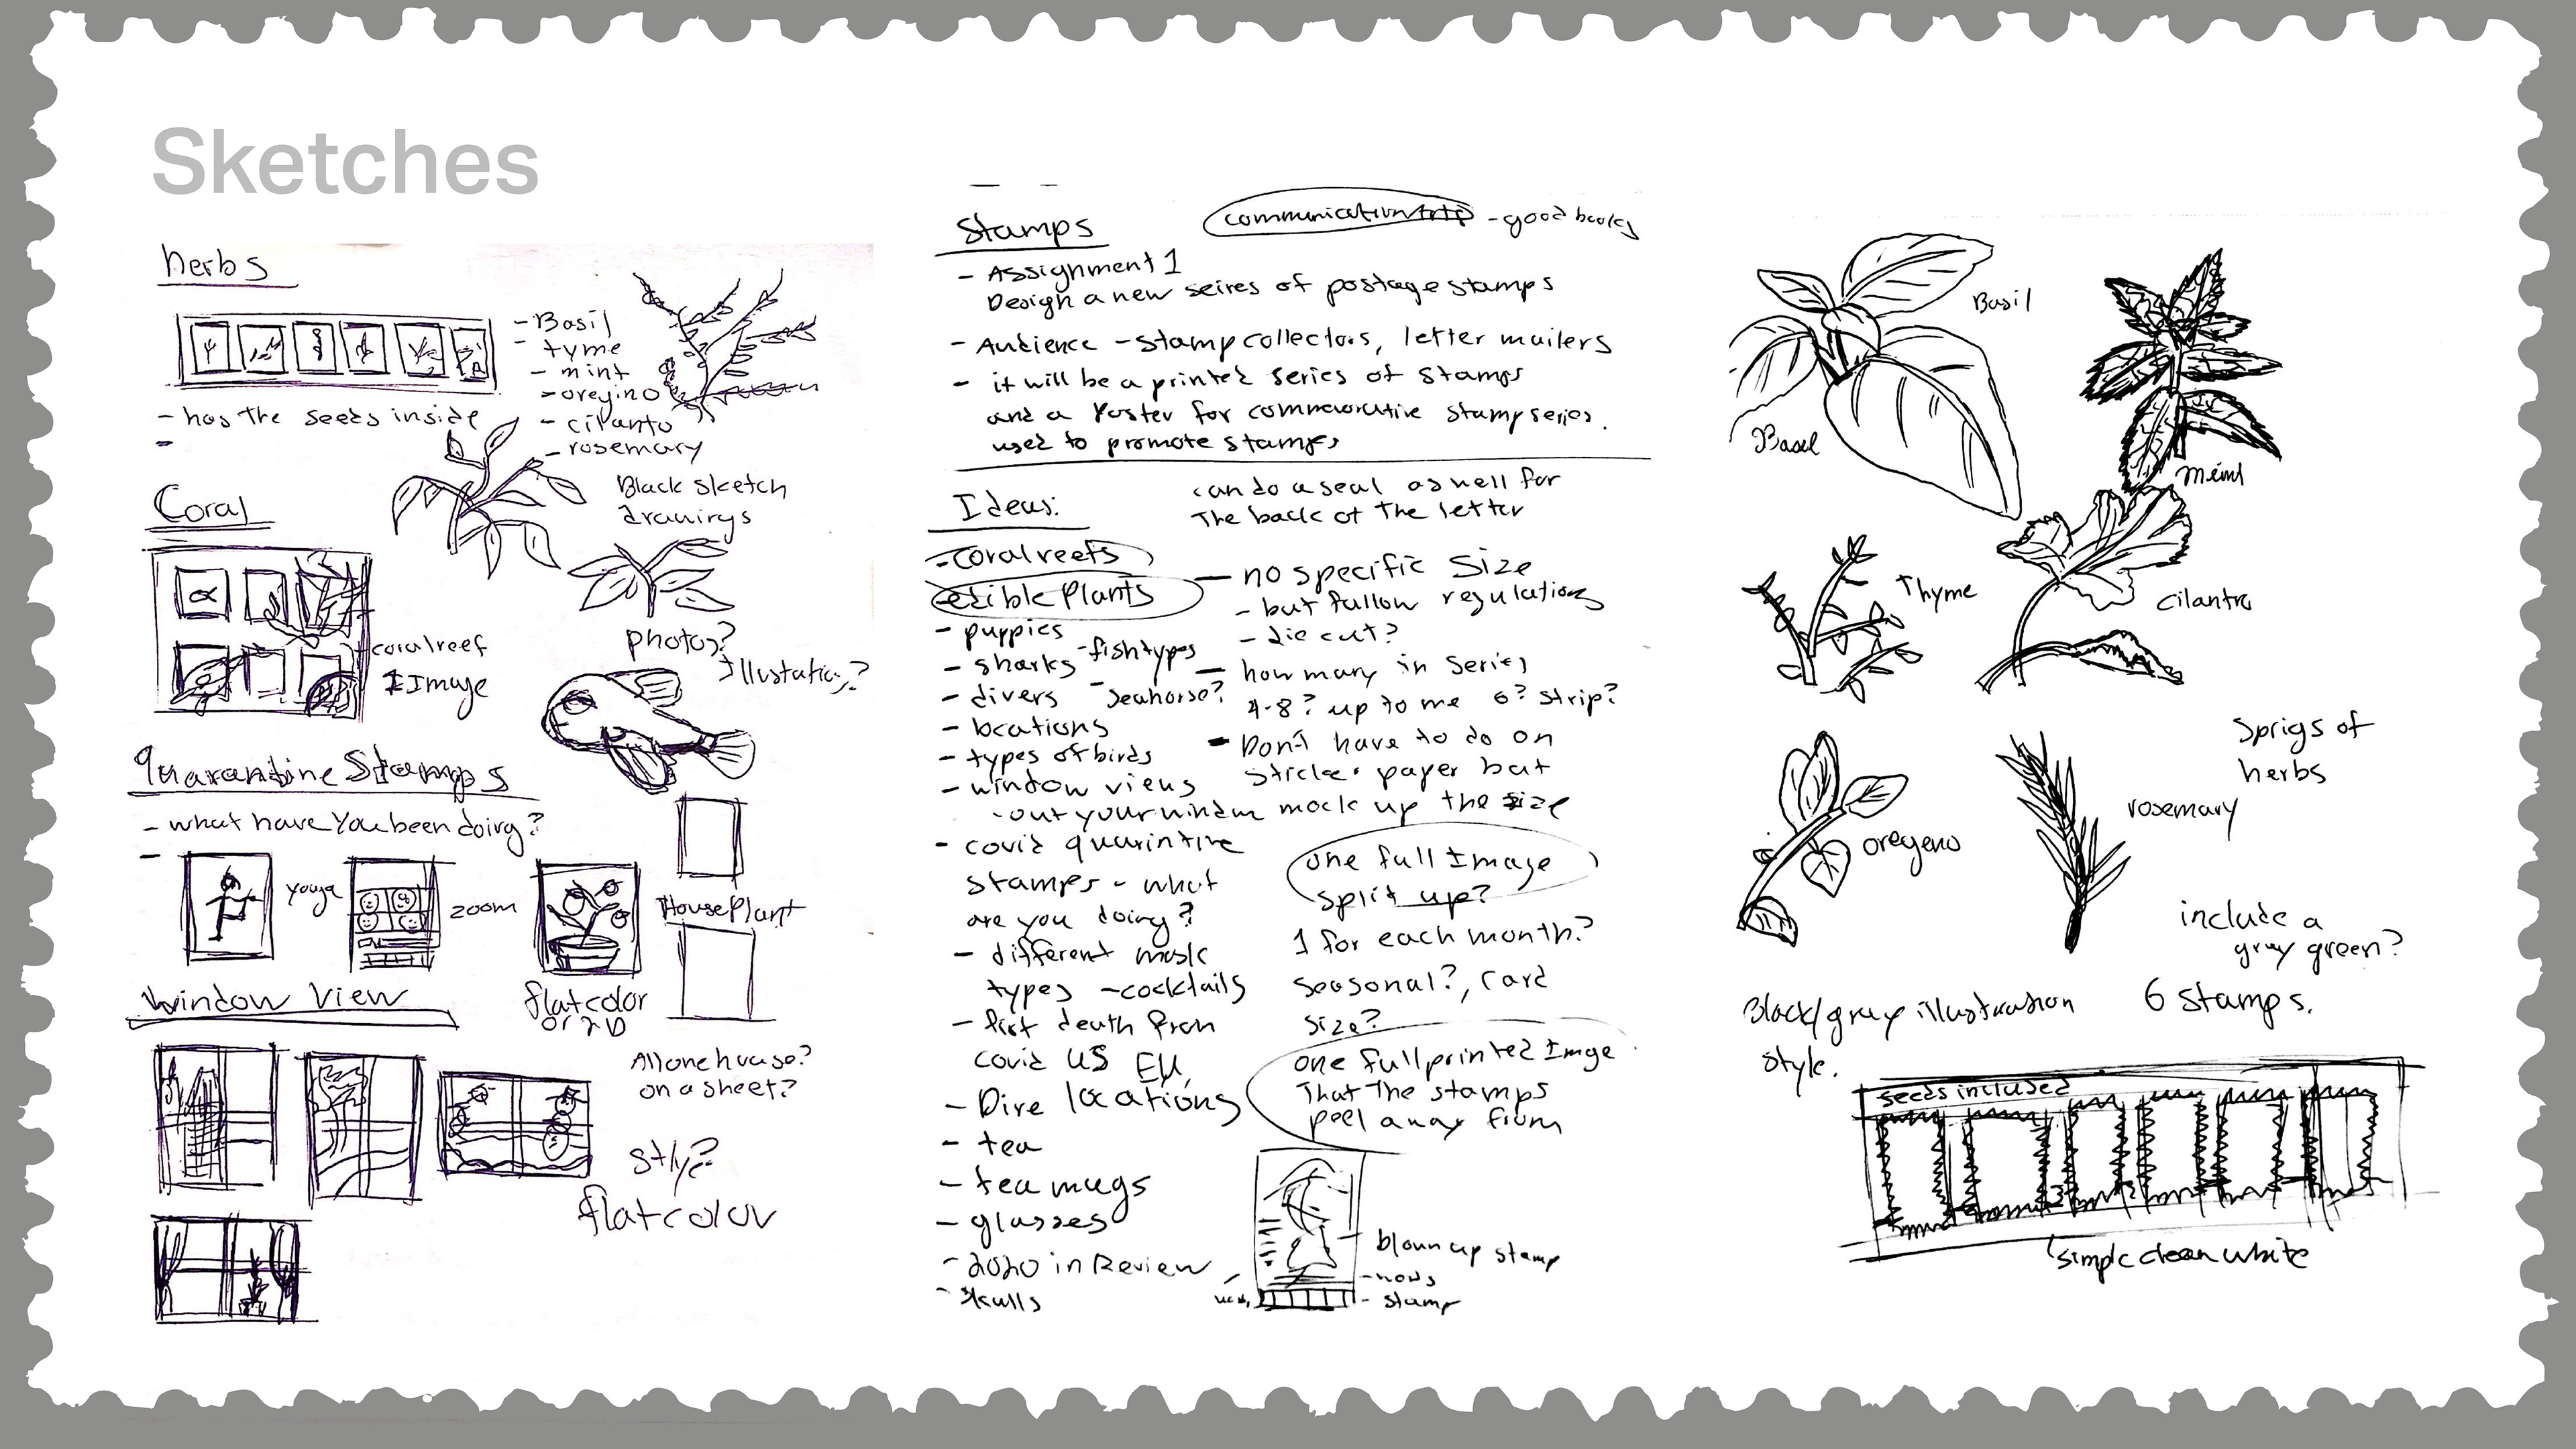 Sketches
herbs
- Basil
- tyme
- mint
- oregino
- cilanto
- rosemary
- has the seeds inside
Black sketch
drawings
Coral
photos?
Illustation?
coral reef
1 Image
Quarantine Stamps
- what have You been doing?
youga
zoom
House Plant
flat color
or 2D
Window View
All one house?
on a sheet?
style?
flat color
Stamps
communication arts - good books
- Assignment 1
Design a new seires of postage stamps
- Audience - stamp collectors, letter mailers
- it will be a printed series of stamps
and a Poster for commemorative stamp series.
used to promote stamps
Ideas:
can do a seal as well for
The back of the letter
- coral reefs
- edible Plants
- puppies
- sharks - fish types
- divers - seahorse?
- locations
- types of birds
- window views
- out your window
- covid quarintine
stamps - what
are you doing?
- different music
types - cocktails
- first death from
covid US EU
- Dive locations
- tea
- tea mugs
- glasses
- 2020 in Review
- skulls
- no specific Size
- but follow regulations
- die cut?
- how many in series
4-8? up to me 6? strip?
- Don't have to do on
sticker paper but
mock up the size
one full Image
split up?
1 for each month?
seasonal?, card
size?
one full printed Image
That the stamps
peel away from
blown up stamp
- stamp
Basil
Basil
Mint
Thyme
cilantro
oregeno
rosemary
Sprigs of
herbs
include a
gray green?
Black/gray illustration
style.
6 stamps.
seeds included
simple clean white